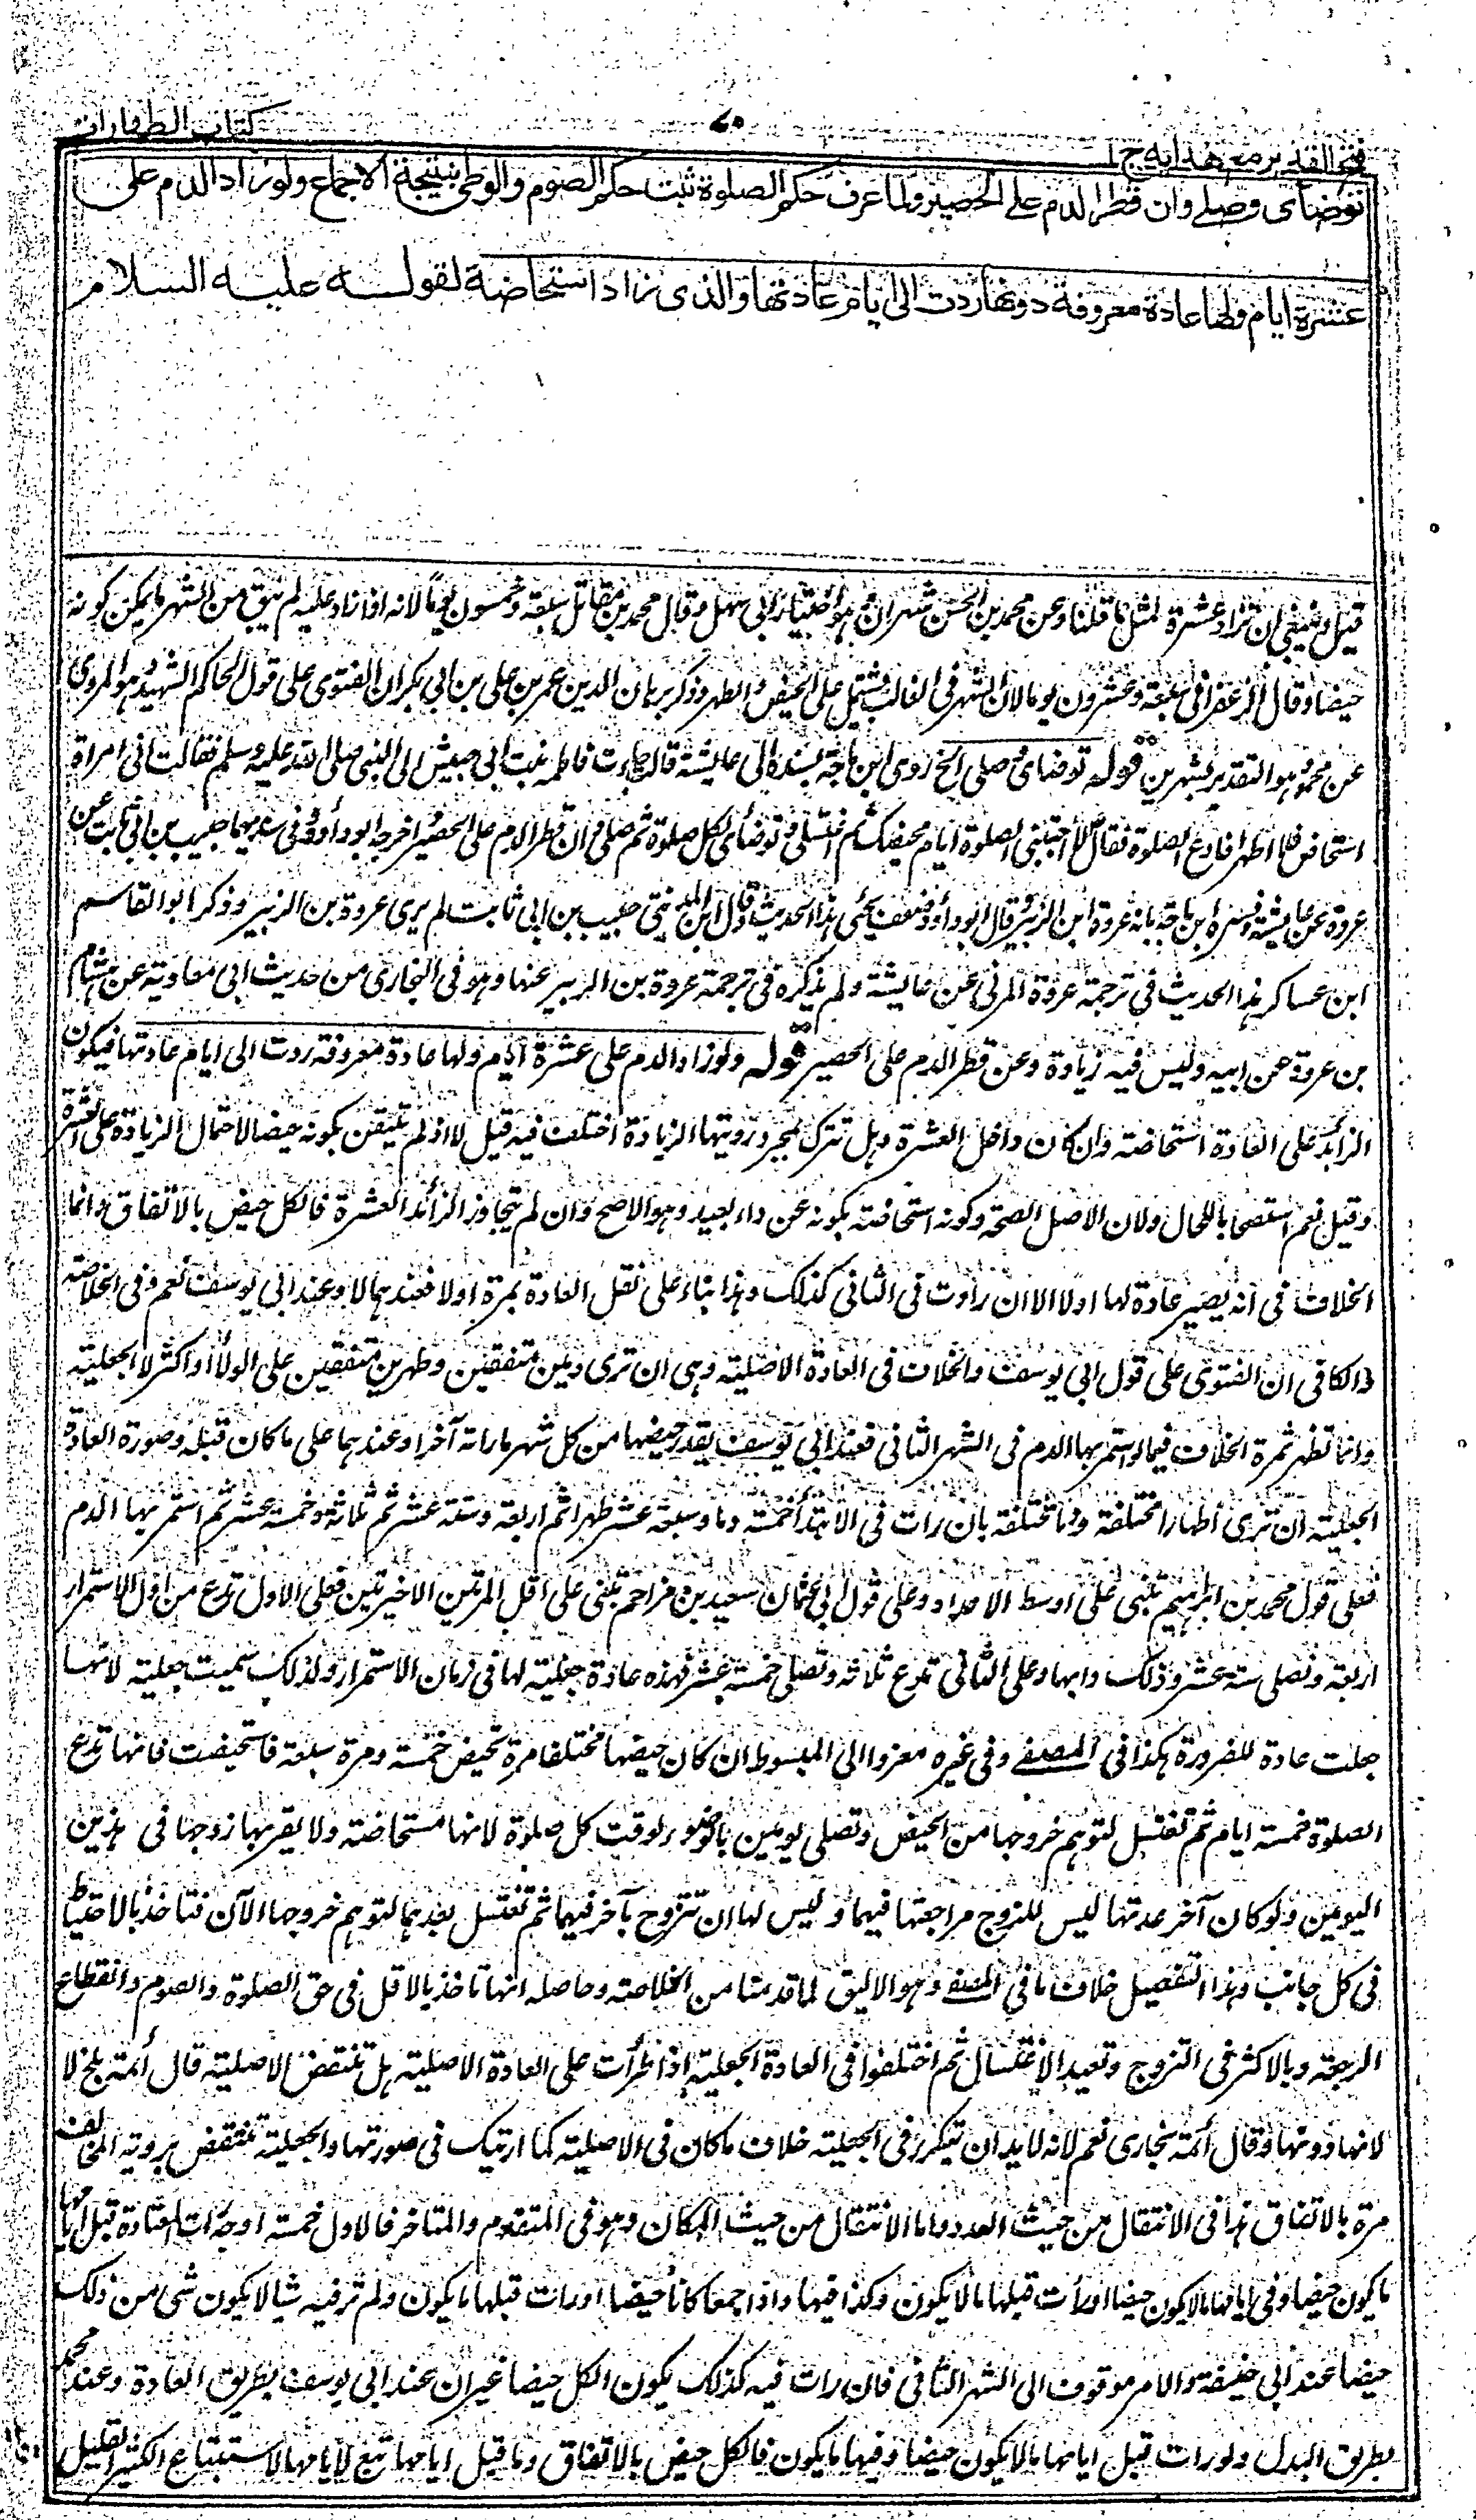 كتاب الطهارات
٧٥
فتح القدير مع هدايه ج ١
توضأى وصلى وان قطر الدم على الحصير ولما عرف حكم الصلوة ثبت حكم الصوم والوطى بنتيجة الاجماع ولو زاد الدم على
عشرة ايام ولها عادة معروفة دونها ردت الى ايام عادتها والذى زاد استحاضة لقوله عليه السلام
قيل وينبغى ان تزاد عشرة لمثل ما قلنا وعن محمد بن الحسن شهران وهو اختيار ابى سهل وقال محمد بن مقاتل سبعة وخمسون يوما لانه اذا زاد عليه لم يبق من الشهر ما يمكن كونه
حيضا وقال الزعفرانى سبعة وعشرون يوما لان الشهر فى الغالب يشتمل على الحيض والطهر وذكر برهان الدين عمر بن على بن ابى بكر ان الفتوى على قول الحاكم الشهيد وهو المروى
عن محمد وهو التقدير بشهرين قوله توضأى وصلى الخ روى ابن ماجة بسنده الى عايشة قالت جاءت فاطمه بنت ابى حبيش الى النبى صلى الله عليه وسلم فقالت انى امراة
استحاض فلا اطهر افادع الصلوة فقال لا اجتنبى الصلوة ايام محيضك ثم اغتسلى وتوضأى لكل صلوة ثم صلى وان قطر الدم على الحصير واخرجه ابو داؤد وفى سنديهما حبيب بن ابى ثابت عن
عروة عن عايشة وفسره ابن ماجة بانه عروة ابن الزبير وقال ابو داؤد ضعف يحيى هذا الحديث وقال ابن المدينى حبيب بن ابى ثابت لم يرى عروة بن الزبير وذكر ابو القاسم
ابن عساكر هذا الحديث فى ترجمة عروة المزنى عن عايشة ولم يذكره فى ترجمة عروة بن الزبير عنها وهو فى البخارى من حديث ابى معاوية عن هشام
بن عروة عن ابيه وليس فيه زيادة وعن قطر الدم على الحصير قوله ولو زاد الدم على عشرة ايام ولها عادة معروفة ردت الى ايام عادتها فيكون
الزايد على العادة استحاضة وان كان داخل العشرة وهل تترك بمجرد رويتها الزيادة اختلف فيه قيل لا اذ لم تتيقن بكونه حيضا لاحتمال الزيادة على العشرة
وقيل نعم استصحابا للحال ولان الاصل الصحة وكونه استحاضة بكونه عن داء بعيد وهو الاصح وان لم يتجاوز الزائد العشرة فالكل حيض بالاتفاق وانما
الخلاف فى انه يصير عادة لها اولا الا ان رأوت فى الثانى كذلك وهذا بناء على نقل العادة بمرة اولا فعندهما لا وعند ابى يوسف نعم وفى الخلاصة
والكافى ان الفتوى على قول ابى يوسف والخلاف فى العادة الاصلية وهى ان ترى دمين متفقين وطهرين متفقين على الولأ او اكثر لا الجعلية
وانما تظهر ثمرة الخلاف فيما لو استمر بها الدم فى الشهر الثانى فعند ابى يوسف يقدر حيضها من كل شهر ما راته آخرا وعندهما على ما كان قبله وصورة العادة
الجعلية ان ترى اطهارا مختلفة ودما مختلفة بان رات فى الابتدأ خمسة دما وسبعة عشر طهرا ثم اربعة وستة عشر ثم ثلاثة وخمسة عشر ثم استمر بها الدم
فعلى قول محمد بن ابراهيم تبنى على اوسط الاعداد وعلى قول ابى عثمان سعيد بن مزاحم تبنى على اقل المرتين الاخيرتين فعلى الاول تدع من اول الاستمرار
اربعة وتصلى ستة عشر وذلك دابها وعلى الثانى تدع ثلاثة وتصلى خمسة عشر فهذه عادة جعلية لها فى زمان الاستمرار ولذلك سميت جعلية لانها
جعلت عادة للضرورة هكذا فى المصفى وفى غيره معزوا الى المبسوط ان كان حيضها مختلفا مرة تحيض خمسة ومرة سبعة فاستحيضت فانها تدع
الصلوة خمسة ايام ثم تغتسل لتوهم خروجها من الحيض وتصلى يومين بالوضوء لوقت كل صلوة لانها مستحاضة ولا يقربها زوجها فى هذين
اليومين ولو كان آخر عدتها ليس للزوج مراجعتها فيهما وليس لها ان تتزوج بآخر فيهما ثم تغتسل بعدهما لتوهم خروجها الآن فتاخذ بالاحتياط
فى كل جانب وهذا التفصيل خلاف ما فى المصفى وهو الاليق لما قدمنا من الخلاصة وحاصله انها تاخذ بالاقل فى حق الصلوة والصوم وانقطاع
الرجعة وبالاكثر فى التزوج وتعيد الاغتسال ثم اختلفوا فى العادة الجعلية اذا طرأت على العادة الاصلية هل تنتقض الاصلية قال أئمة بلخ لا
لانها دونها وقال أئمة بخارى نعم لانه لا بد ان تتكرر فى الجعلية خلاف ما كان فى الاصلية كما اريتك فى صورتها والجعلية تنتقض بروية المخالف
مرة بالاتفاق هذا فى الانتقال من حيث العدد واما الانتقال من حيث المكان وهو فى المتقدم والمتاخر فالاول خمسة اوجه رات المعتادة قبل ايامها
ما يكون حيضا وفى ايامها ما لا يكون حيضا او رأت قبلها ما لا يكون وكذا فيها واذا جمعا كانا حيضا او رات قبلها ما يكون ولم تر فيه شيا لا يكون شئ من ذلك
حيضا عند ابى حنيفة والامر موقوف الى الشهر الثانى فان رات فيه كذلك يكون الكل حيضا غير ان عند ابى يوسف بطريق العادة وعند محمد
بطريق البدل ولو رات قبل ايامها ما لا يكون حيضا وفيها ما يكون فالكل حيض بالاتفاق وما قبل ايامها تبع لايامها لاستتباع الكثير القليل